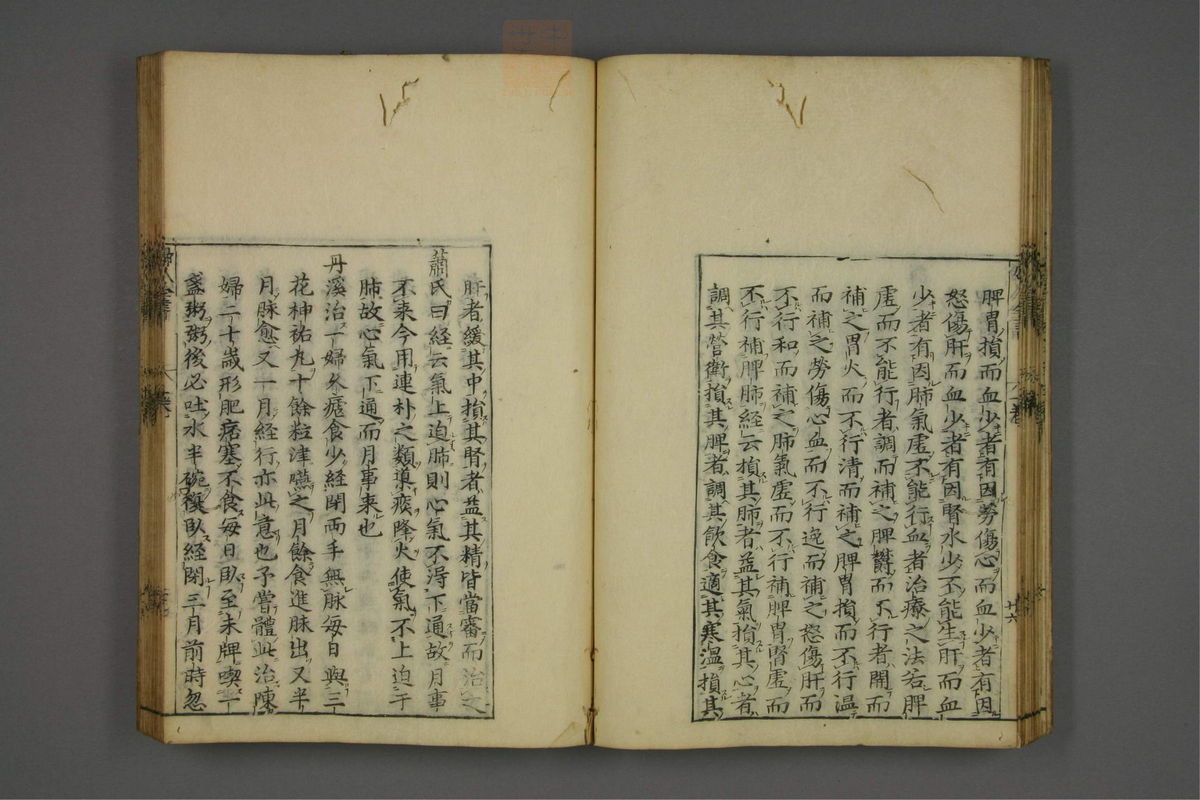 脾胃損而血少者有因勞傷心而血少者有因
怒傷肝而血少者有因腎水少不能生肝而血
少者有因肺氣虛不能行血者治療之法若脾
虛而不能行者調而補之脾鬱而不行者開而
補之胃火而不行清而補之脾胃損而不行溫
而補之勞傷心血而不行逸而補之怒傷肝而
不行和而補之肺氣虛而不行補脾胃腎虛而
不行補脾肺經云損其肺者益其氣損其心者
調其營衛損其脾者調其飲食適其寒溫損其
廿六
肝者緩其中損其腎者益其精皆當審而治之
蕭氏曰經云氣上迫肺則心氣不得下通故月事
不來今用連朴之類導痰降火使氣不上迫于
肺故心氣下通而月事來也
丹溪治一婦久瘧食少經閉兩手無脉每日與三
花神祐丸十餘粒津嚥之月餘食進脉出又半
月脉愈又一月經行亦此意也予嘗體此治陳
婦二十歲形肥痞塞不食每日臥至未牌喫一
盞粥粥後必吐水半碗復臥經閉三月前時忽